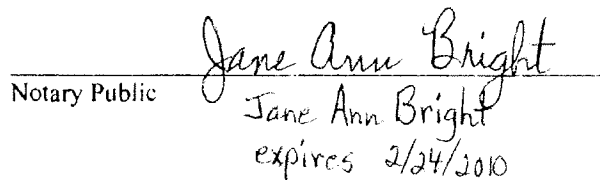 Jane Ann Bright
Notary Public
Jane Ann Bright
expires 2/24/2010